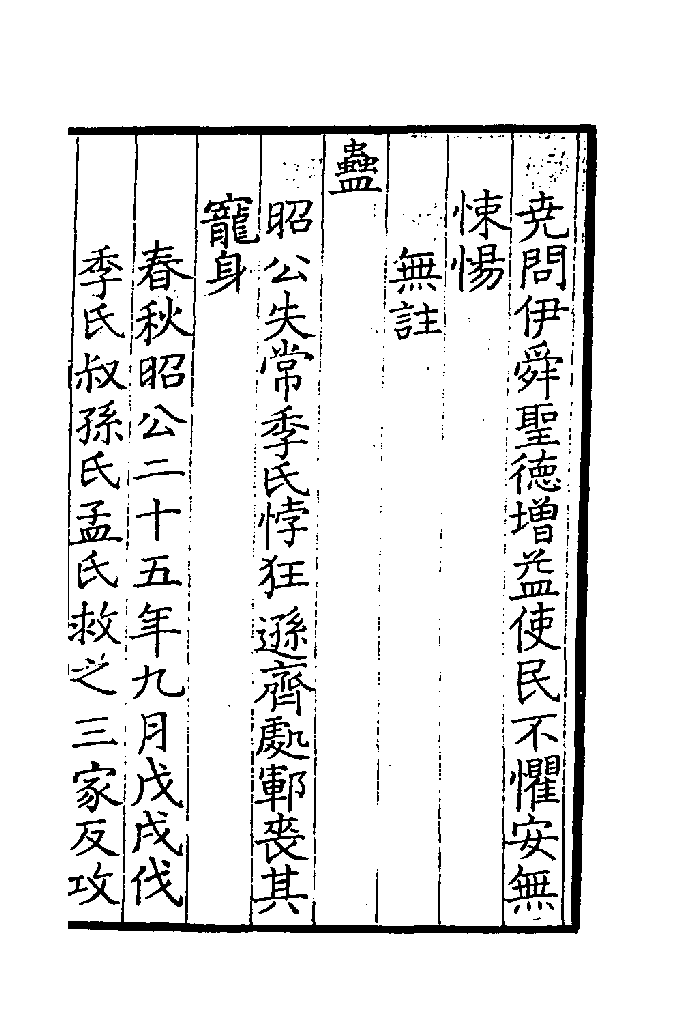 尭問伊舜聖徳增益使民不懼安無
悚惕
無註
蠱
昭公失常季氏悖狂遜齊處鄆喪其
寵身
春秋昭公二十五年九月戊戌伐
季氏叔孫氏孟氏救之三家反攻